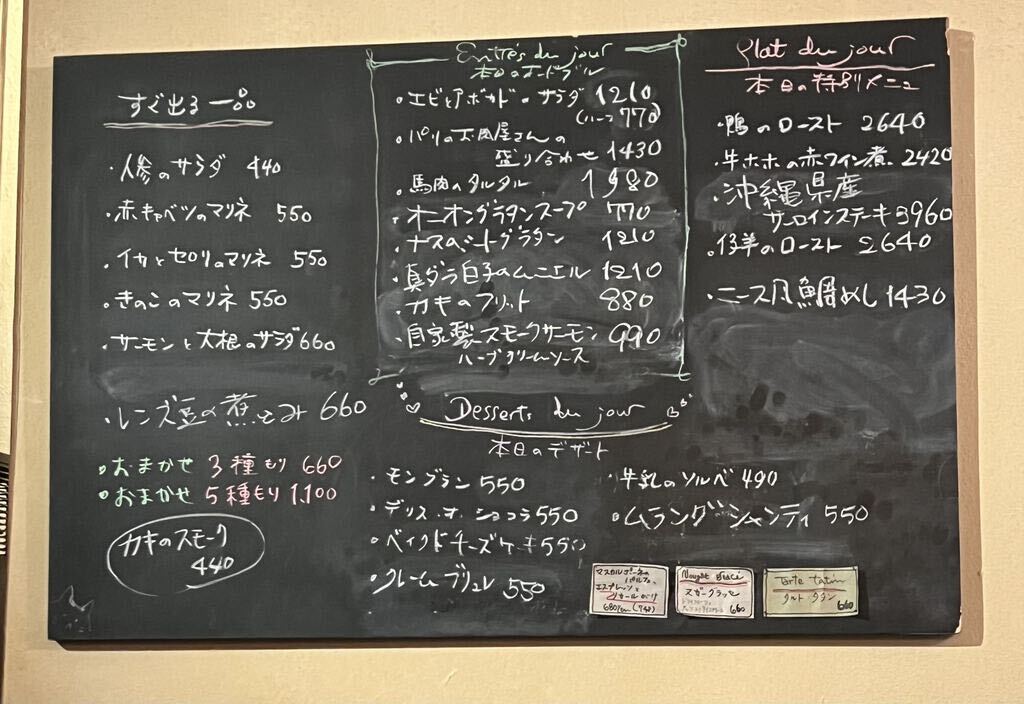 すぐ出る一品
・人参のサラダ 440
・赤キャベツのマリネ 550
・イカとセロリのマリネ 550
・きのこのマリネ 550
・サーモンと大根のサラダ 660
・レンズ豆の煮込み 660
・おまかせ 3種もり 660
・おまかせ 5種もり 1,100
カキのスモーク
440
Entrées du jour
本日のオードブル
・エビとアボカドのサラダ 1210
(ハーフ 770)
・パリのお肉屋さんの
盛り合わせ 1430
・馬肉のタルタル 1980
・オニオングラタンスープ 770
・ナスのミートグラタン 1210
・真ダラ白子のムニエル 1210
・カキのフリット 880
・自家製スモークサーモン 990
ハーブクリームソース
Plat du jour
本日の特別メニュー
・鴨のロースト 2640
・牛ホホの赤ワイン煮 2420
・沖縄県産
サーロインステーキ 3960
・仔羊のロースト 2640
・ニース風鯛めし 1430
Desserts du jour
本日のデザート
・モンブラン 550
・デリス・オ・ショコラ 550
・ベイクドチーズケーキ 550
・クレームブリュレ 550
・牛乳のソルベ 490
・ムラングシャンティ 550
マスカルポーネの
エスプレッソと
680yen (748)
Nougat glacé
ヌガーグラッセ
660
Tarte tatin
タルトタタン
660